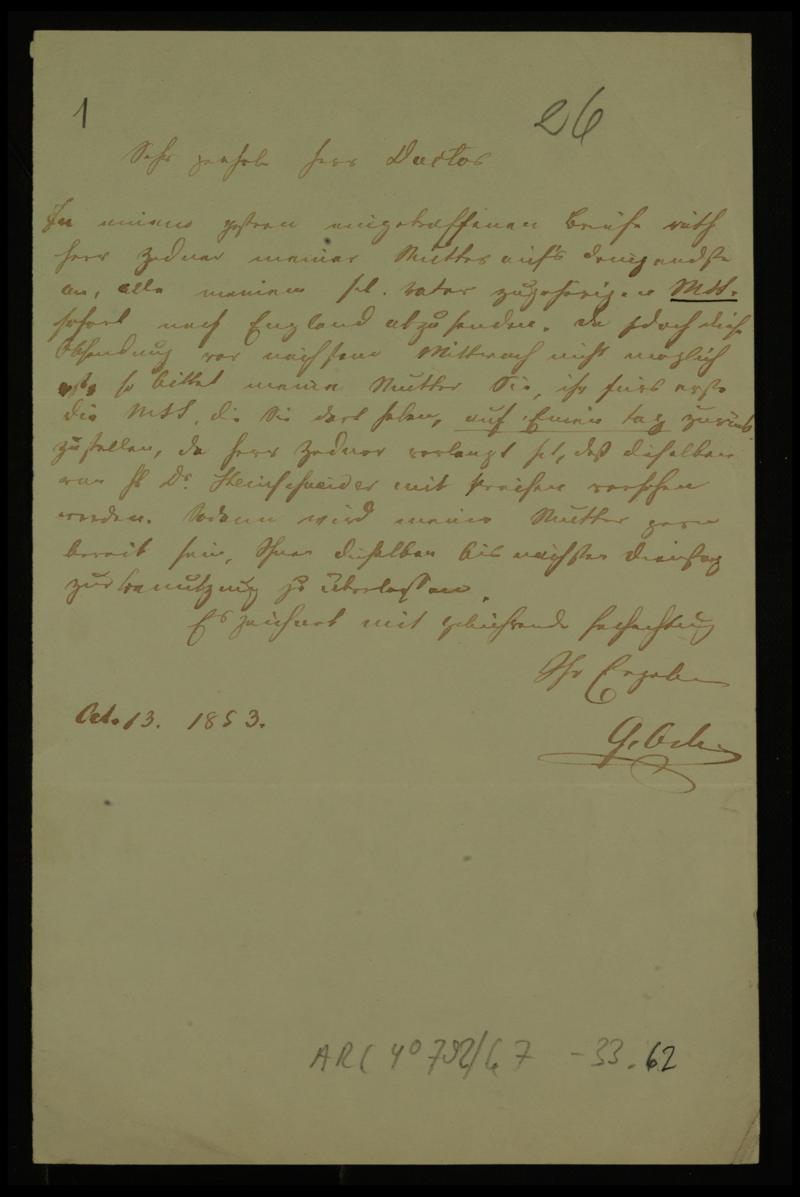 1
26
Sehr geehrter Herr Doctor
In einem gestern eingetroffenen Briefe räth
Herr Zedner meiner Mutter auf's dringendste
an, alle meinem sel. Vater zugehörigen MSS.
sofort nach England abzusenden. Da jedoch diese
Absendung vor nächstem Mittwoch nicht möglich
so bittet meine Mutter Sie, ihr fürs erste
die MSS, die Sie dort haben, auf Einen Tag zurück
zustellen, da Herr Zedner verlangt hat, daß dieselben
von H Dr. Steinschneider mit Preisen versehen
werden. Sodann wird meine Mutter gern
bereit sein, Ihnen dieselben bis nächsten Dienstag
zur Benutzung zu überlassen.
Es zeichnet mit gebührender Hochachtung
Ihr Ergebener
Oct. 13. 1853.
ARC 4° 792/G 7 - 33. 62